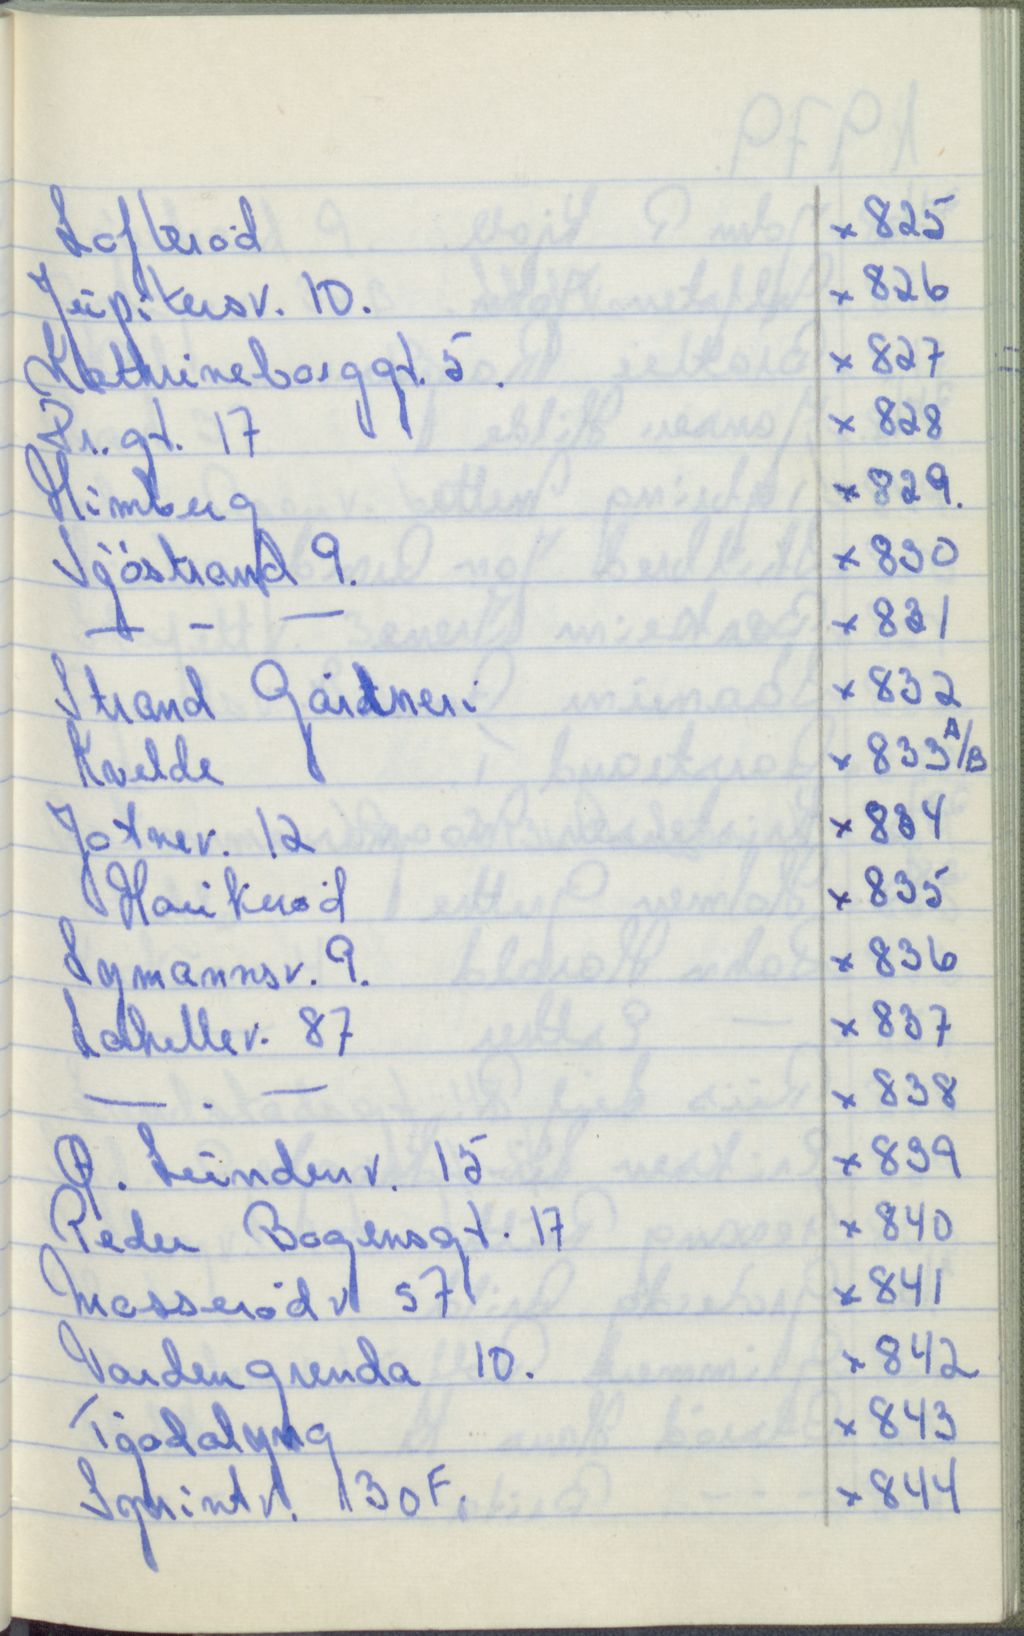 Lofterød x 825
Jupitersv. 10. x 826
Kathrineborggt. 5. x 827
Pr.. gt. 17 x 828
Himberg x 829.
Sjöstrand 9. x 830
— - — x 831
Strand Gartneri x 832
Kvelde x 833 A/B
Jotnev. 12 x 834
Haukerød x 835
Symannsv. 9. x 836
Lahellev. 87 x 837
— . — x 838
O. Lundenv. 15 x 839
Peder Bogensgt. 17 x 840
Mosserødv 57 x 841
Vardengrenda 10. x 842
Tjodalyng x 843
Sprintv. 130F. x 844